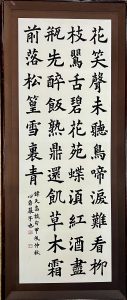 花笑聲未聽鳥啼淚難看柳
枝鶯舌碧花蝶紅酒盡
瓶先醉飯熟鼎還飢草木霜
前落松篁雪裏青
甲辰仲秋